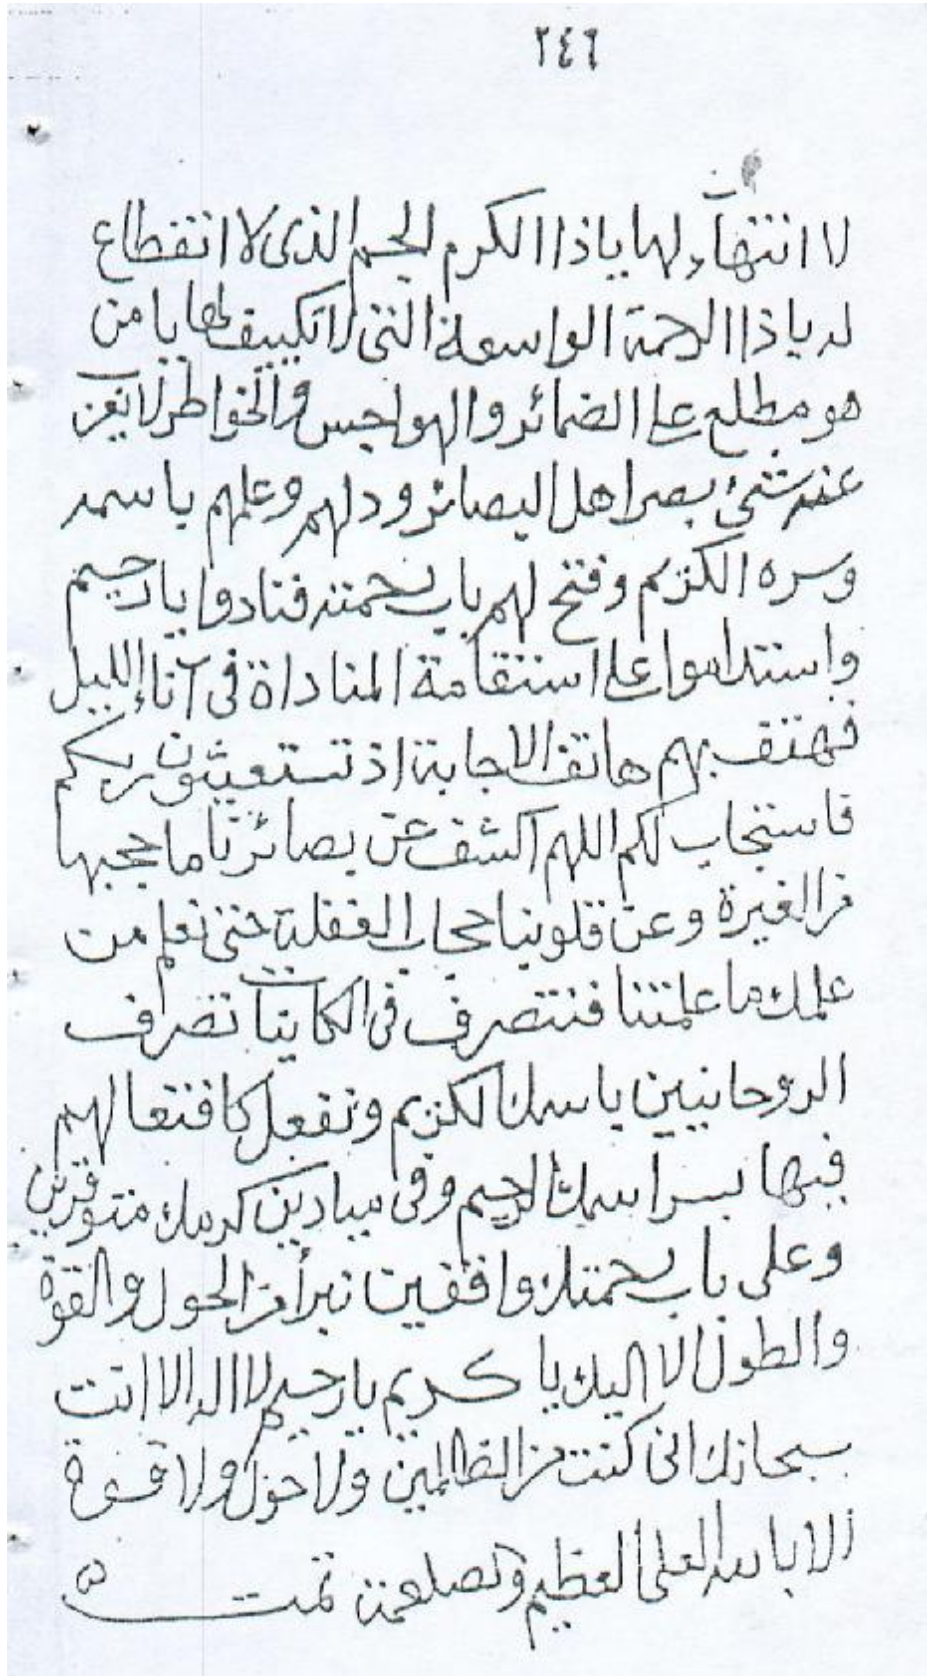 ٢٤٦
لا انتهاء لها ياذا الكرم الجسيم الذى لا انقطاع
له ياذا الرحمة الواسعة التى لا تكييف لها يا من
هو مطلع على الضمائر والهواجس والخواطر لا يعزب
عنه شئ بصر اهل البصائر ودلهم وعلمهم باسمه
وسره الكريم وفتح لهم باب رحمته فنادوا يا رحيم
واستداموا على استقامة المناداة فى آناء الليل
فهتف بهم هاتف الاجابة اذ تستغيثون ربكم
فاستجاب لكم اللهم اكشف عن بصائرنا ما حجبها
من الغيرة وعن قلوبنا حجاب الغفلة حتى نعلم من
علمك ما علمتنا فنتصرف فى الكاينات تصراف
الروحانيين باسمك الكريم ونفعل كافتعالهم
فيها بسر اسمك الرحيم وفى ميادين كرمك
وعلى باب رحمتك واقفين نبرأ من الحول والقوة
والطول الا اليك يا كريم يا رحيم لا اله الا انت
سبحانك انى كنت من الظالمين ولا حول ولا قوة
الا بالله العلى العظيم تمت